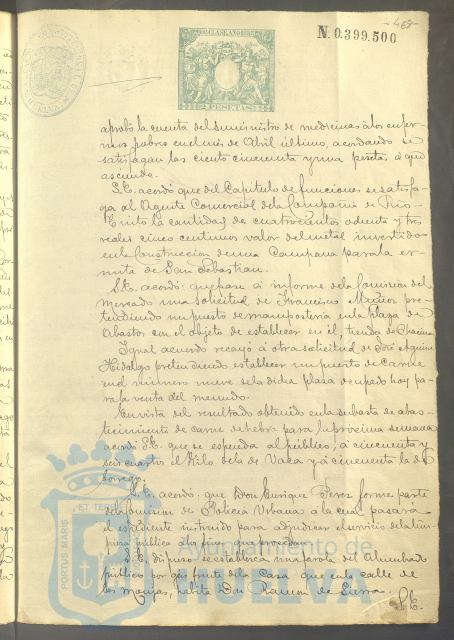 468
N. 0.399.500
2 PESETAS
aprobó la cuenta del suministro de medicinas á los enfer-
mos pobres en el mes de Abril último, acordando se
satisfagan las ciento cincuenta y una pesetas á que
asciende.
S.E. acordó que del Capitulo de funciones se satisfa-
ga al Agente Comercial de la Compañia de Rio-
Tinto la cantidad de cuatrocientos ochenta y tres
reales cinco centimos valor del metal invertido
en la Construccion de una Campana para la er-
mita de San Sebastian.
S.E. acordó que pase á informe de la Comision del
Mercado una solicitud de Francisco Muñoz pre-
tendiendo un puesto de mamposteria en la plaza de
Abastos con el objeto de establecer en él, tienda de Chacina
Igual acuerdo recayó á otra solicitud de José Aquino
Hidalgo pretendiendo establecer un puesto de Carne
en el número nueve de la dicha plaza ocupado hoy pa-
ra la venta del menudo.
En vista del resultado obtenido en la subasta de abas-
tecimiento de carne de hebra para la proxima semana
acordó S.E. que se espenda al público, á cincuenta y
seis cuartos el Kilo de la de Vaca y á cincuenta la de
borrego.
S.E. acordó, que Don Enrique Perez forme parte
de la Comision de Policia Urbana á la cual pasará
el espediente instruido para adjudicar el servicio de la lim-
pieza pública á los fines que procedan.
S.E. dispuso se establezca una farola del Alumbrado
público por gas frente de la Casa que en la calle de
las monjas, habita Don Ramon de Sierra.
S.E.
PORTUS MARIS
ET TE
Ayuntamiento de
HUELVA